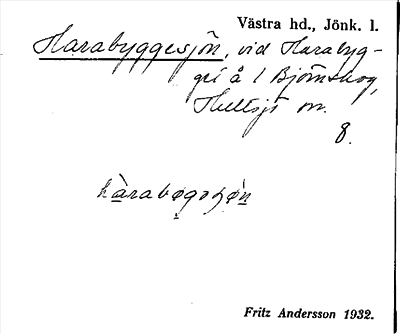 Västra hd., Jönk. l.
Harabyggesjön, vid Harabyg-
ge i å l Björnskog,
Hultsjö sn.
8.
hàrabøgoʂøn
Fritz Andersson 1932.